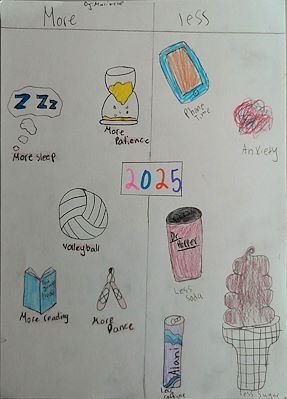 More
less
ZZZ
More sleep
More
Patience
Phone
Time
Anxiety
2025
Volleyball
Dr. Pepper
Less
Soda
More reading
More
Dance
Alani
Less
caffeine
Less sugar